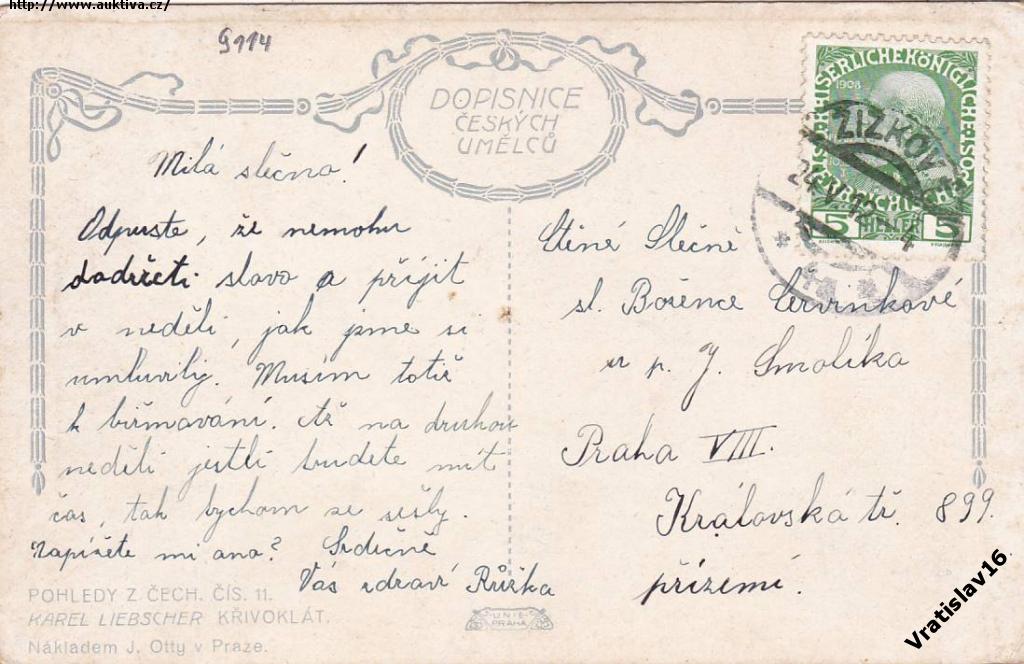 http://www.auktiva.cz/
9114
DOPISNICE
ČESKÝCH
UMĚLCŮ
Milá slečno!
Odpusťe, že nemohu
dodržeti slovo a přijit
v neděli, jak jsme si
umluvily. Musím totiž
k biřmování. Až na druhou
neděli jestli budete mít
čas, tak bychom se sešly.
Napíšete mi ano? Srdečně
Vás zdraví Růžka
1908
ŽIŽKOV
24 V 12
5 HELLER 5
Ctěné Slečně
sl. Božence Červinkové
u p. J. Smolíka
Praha VIII.
Královská tř. 899
přízemí.
POHLEDY Z ČECH. ČÍS. 11.
KAREL LIEBSCHER KŘIVOKLÁT.
Nákladem J. Otty v Praze.
UNIE
PRAHA
Vratislav16